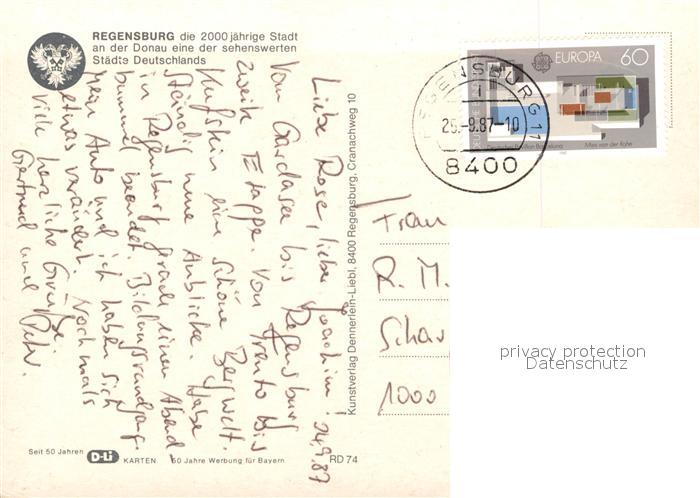 REGENSBURG die 2000jährige Stadt
an der Donau eine der sehenswerten
Städte Deutschlands
EUROPA 60
Deutscher Pavillon Barcelona Mies van der Rohe
REGENSBURG 11
25.-9.87-10
8400
24.9.87
Liebe Rose, lieber Joachim!
Vom Gardasee bis Regensburg
zweite Etappe. Von Trento bis
Kufstein eine schöne Bergwelt.
Ständig neue Anblicke. Habe
in Regensburg gerade einen Abend-
bummel beendet. Bildungsrundgang.
Mein Auto und ich haben sich
etwas verändert. Nochmals
viele herzliche Grüße.
Gertrud und Petr.
Kunstverlag Dennerlein-Liebl, 8400 Regensburg, Cranachweg 10
Frau
R. M.
Schar
1000
privacy protection
Datenschutz
Seit 50 Jahren D-Li KARTEN. 50 Jahre Werbung für Bayern.
RD 74